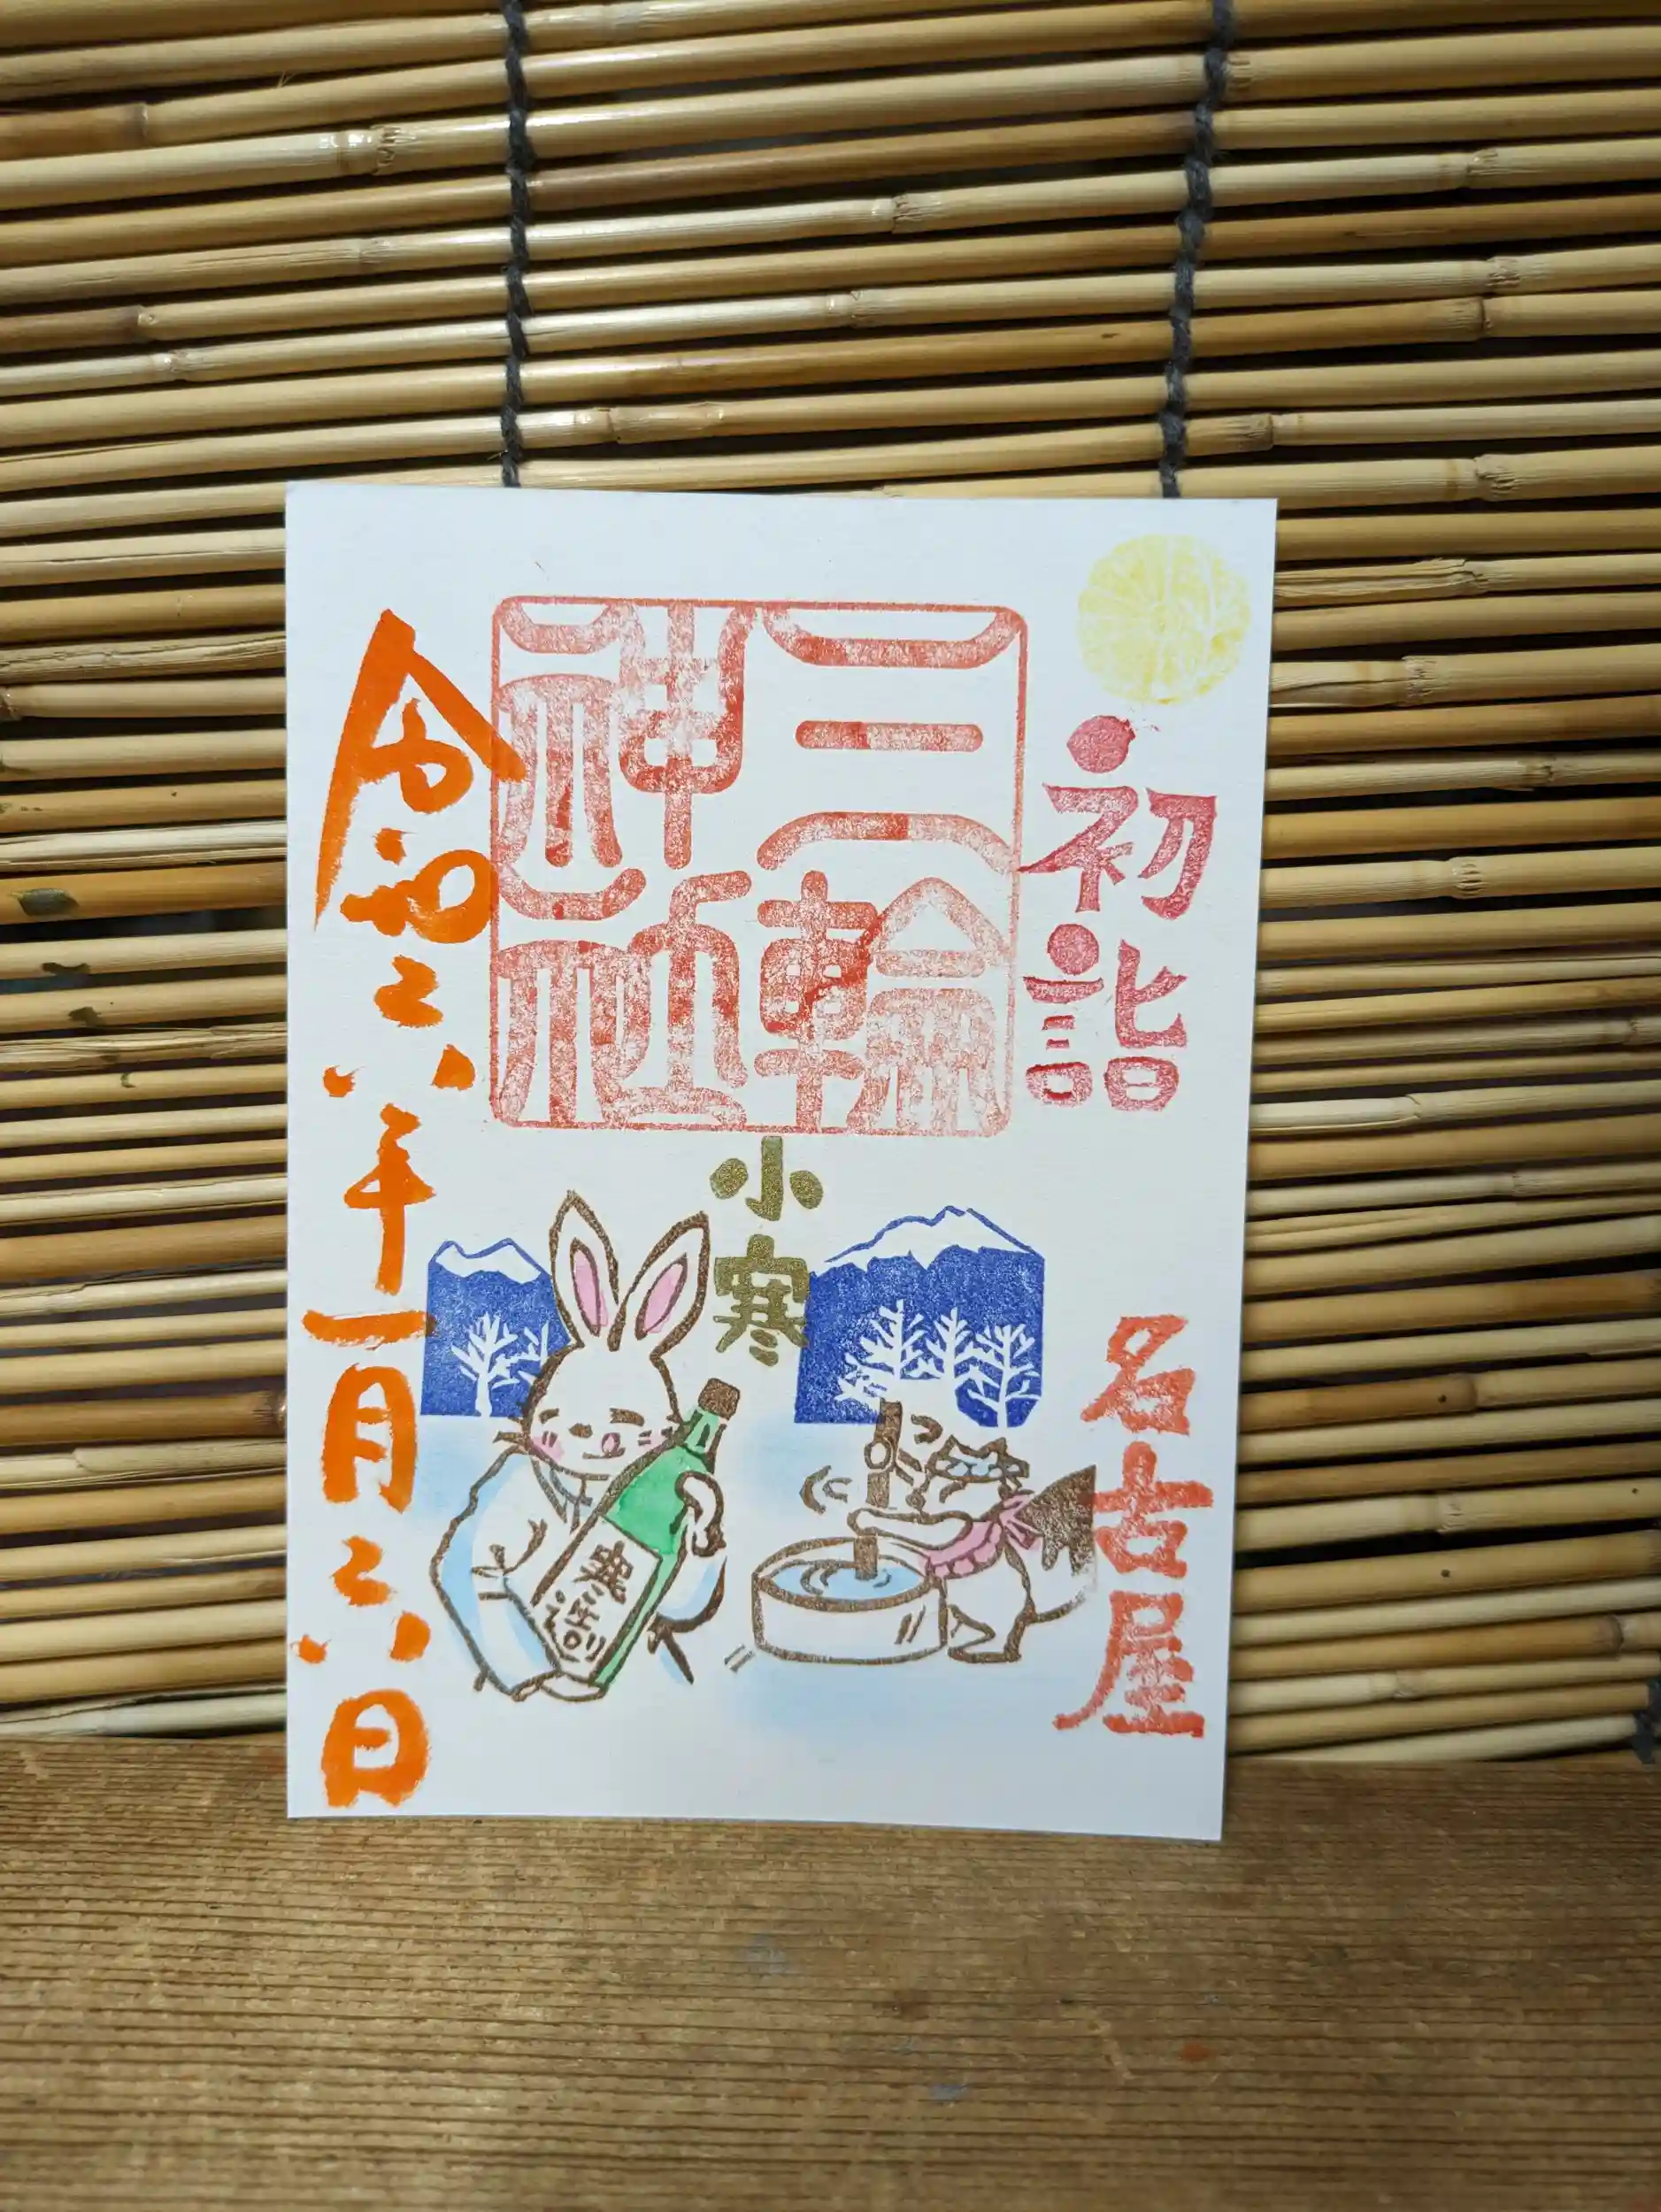 初詣
三輪
神社
小寒
名古屋
寒造り
令和六年一月六日